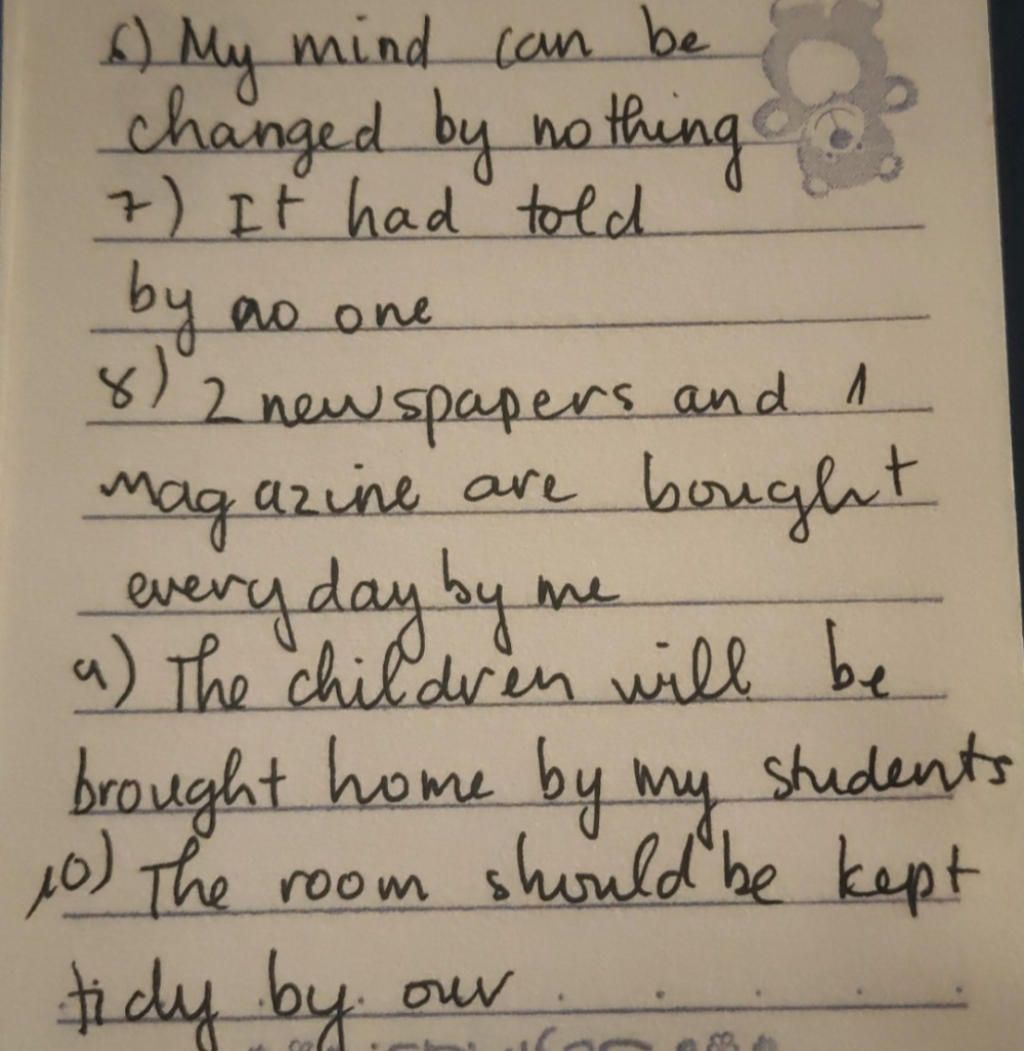 6) My mind can be
changed by nothing
7) It had told
by no one
8) 2 newspapers and 1
magazine are bought
everyday by me
9) The children will be
brought home by my students
10) The room should be kept
tidy by our